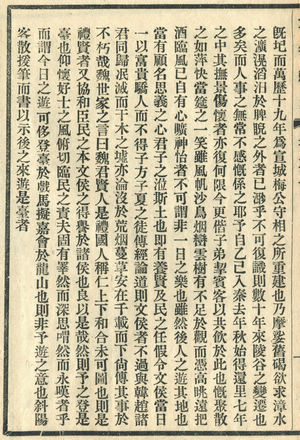 既圮而萬歷十九年爲宣城梅公守相之所重建也乃摩挲舊碣欲求漳水
之瀇滉滔汨於睥睨之外者已渺乎不可復識則數十年來陵谷之變遷也
多矣而人事之無常不感慨係之耶予自乙已入秦去年秋始得還里七年
之中其撫景傷懷者亦復何限今更偕子弟挈賓客以共飲於此也慨聚散
之如萍快當筵之一笑雖風帆沙鳥烟巒雲樹有不足於觀而憑高眺遠把
酒臨風已自有心曠神怡者不可謂非一日之樂也雖然後人之遊其地也
當有顧名思義之心君子之涖斯土也即有養賢及民之任假令文侯當日
一以富貴驕人而不得子方子夏之徒傳經論道則文侯者不過與韓趙諸
君同歸泯滅而干木之墟亦淪沒於荒烟蔓草安在千載而下尚傳其事於
不朽哉魏世家之言曰魏君賢人是禮國人稱仁上下和合未可圖也則是
禮賢者又協和臣民之本文侯之得譽於諸侯也良以是哉然則予之登是
臺也仰懷好士之風俯切臨民之責夫固有睾然而深思喟然而永嘆者乎
而謂今日之遊可侈登臺於戲馬擬嘉會於龍山也則非予遊之意也斜陽
客散援筆而書以示後之來遊是臺者